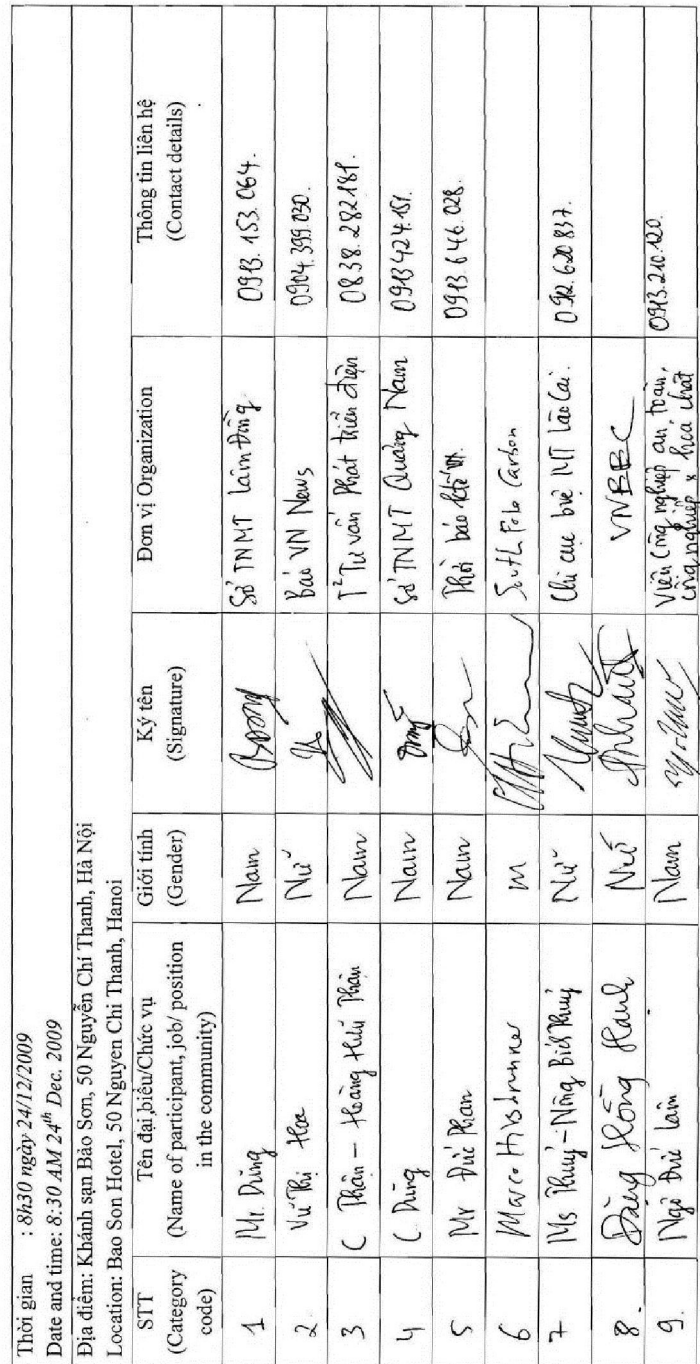 Thời gian : 8h30 ngày 24/12/2009
Date and time: 8:30 AM 24th Dec. 2009
Địa điểm: Khánh sạn Bảo Sơn, 50 Nguyễn Chí Thanh, Hà Nội
Location: Bao Son Hotel, 50 Nguyen Chi Thanh, Hanoi
STT (Category code) Tên đại biểu/Chức vụ (Name of participant, job/ position in the community) Giới tính (Gender) Ký tên (Signature) Đơn vị Organization Thông tin liên hệ (Contact details)
1 Mr. Dũng Nam Sở TNMT Lâm Đồng 0913.153.064.
2. Vũ Thị Hoa Nữ Báo VN News 0904.399.030.
3 C Thận - Hoàng Hữu Thận Nam T² Tư vấn Phát triển điện 0838.282189.
4 C. Dũng Nam Sở TNMT Quảng Nam 0913424.151.
5 Mr Đức Phan Nam Thời báo ktế VN. 0913.646.028.
6 Marco Hirsbrunner M South Pole Carbon
7 Ms Thuý - Nông Bích Thuý Nữ Chi cục bvệ MT Lào Cai. 0912.620837.
8. Đặng Hồng Hạnh Nữ VNEEC
9. Ngô Đức Lâm Nam Viện Công nghiệp an toàn, công nghiệp x hoá chất 0913.210.120.